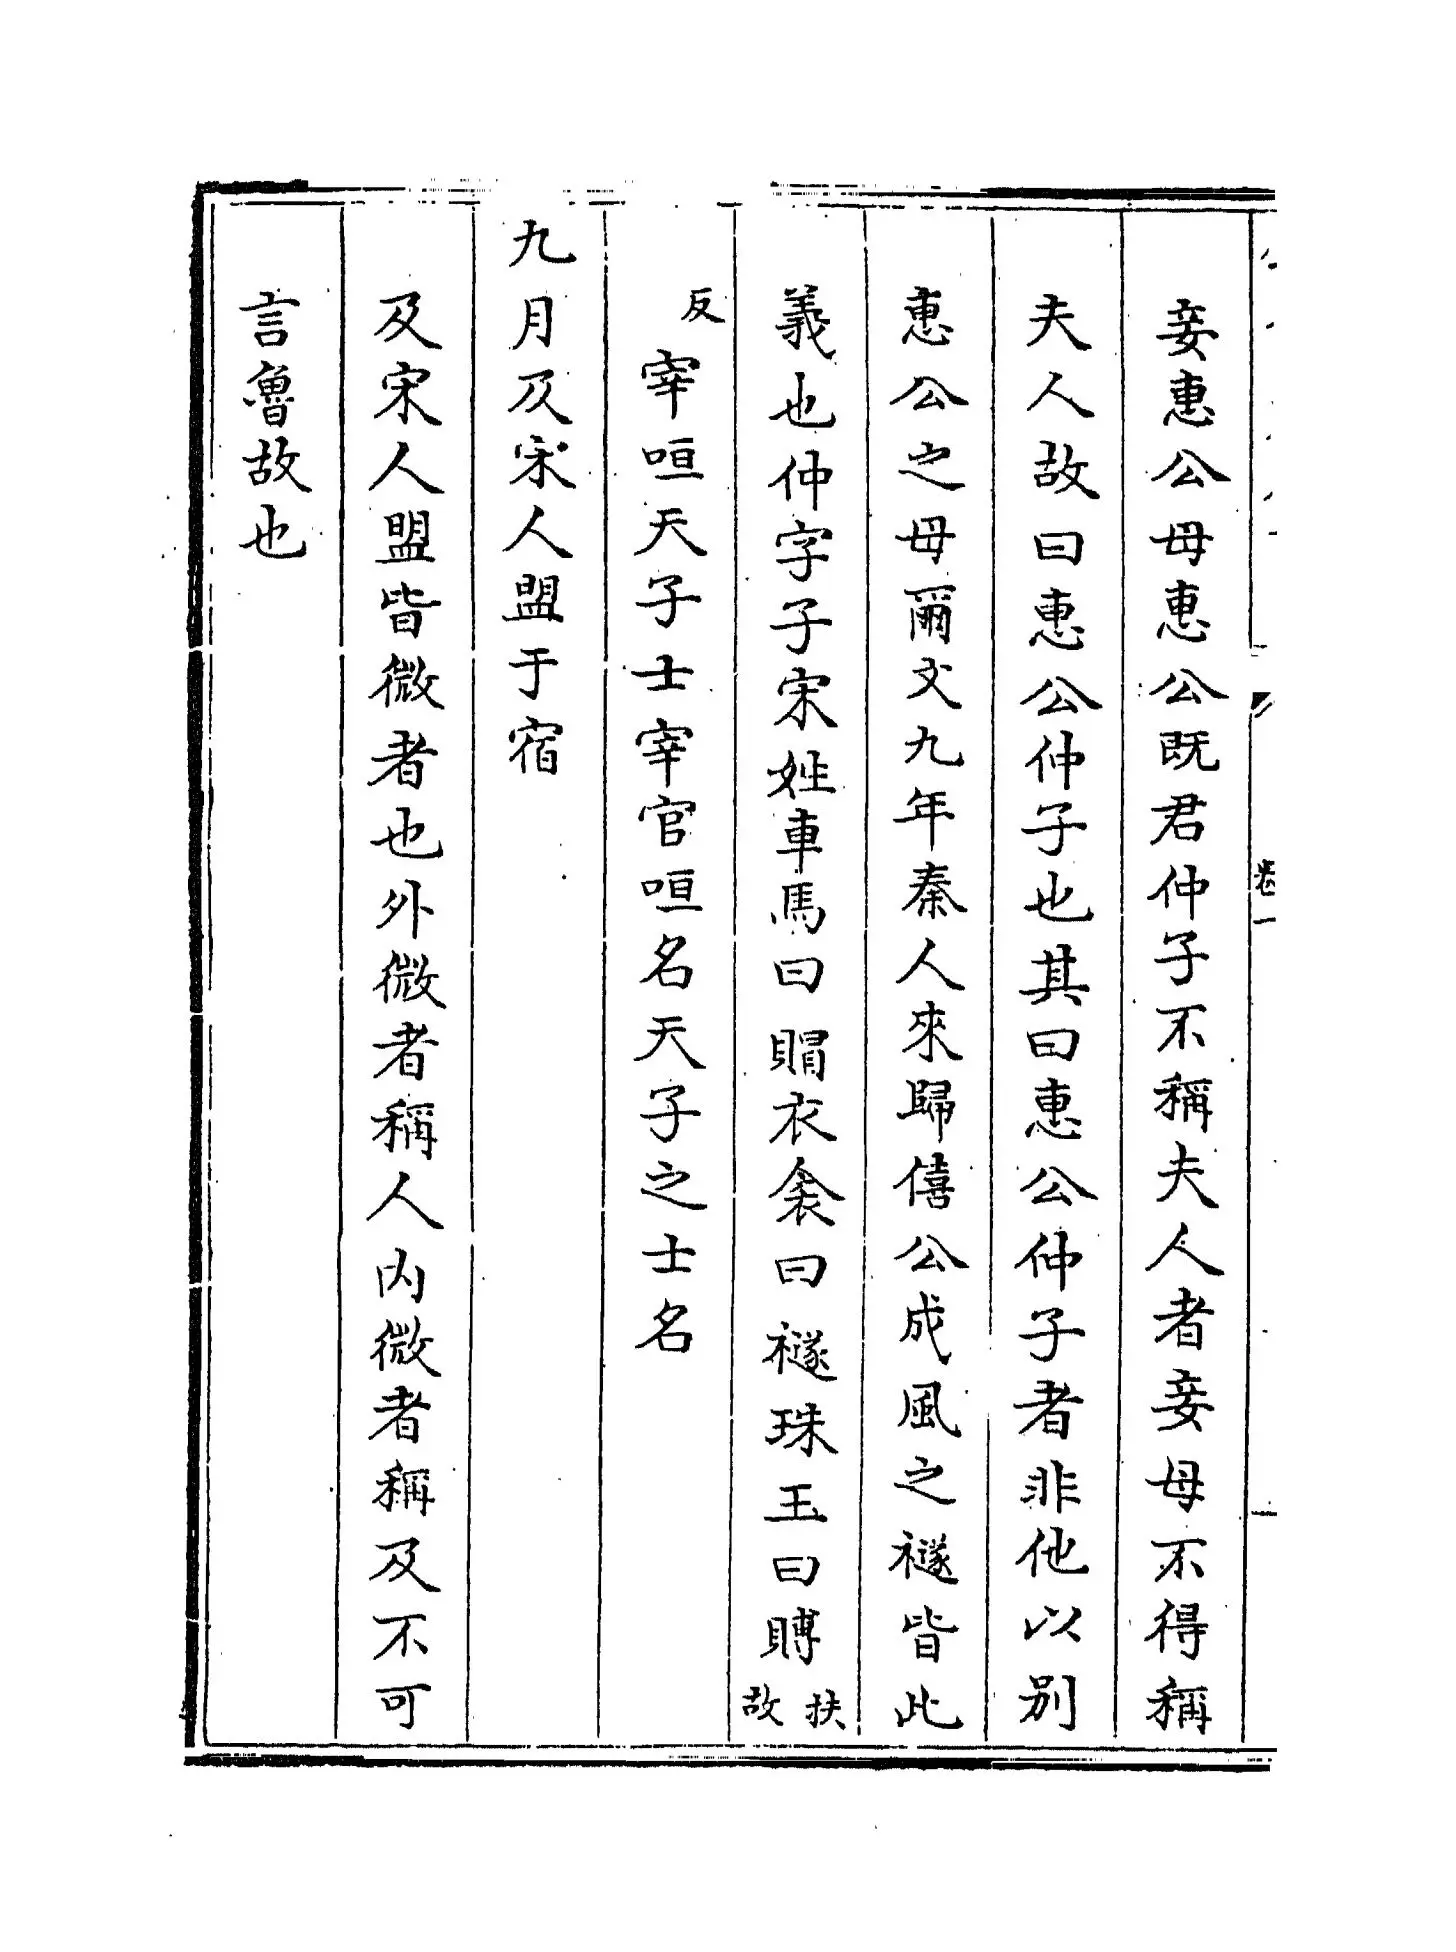 卷一
妾惠公母惠公既君仲子不稱夫人者妾母不得稱
夫人故曰惠公仲子也其曰惠公仲子者非他以别
惠公之母爾文九年秦人來歸僖公成風之襚皆此
義也仲字子宋姓車馬曰賵衣衾曰襚珠玉曰賻扶故
反
宰咺天子士宰官咺名天子之士名
九月及宋人盟于宿
及宋人盟皆微者也外微者稱人内微者稱及不可
言魯故也